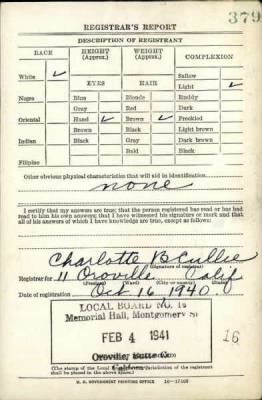 379
REGISTRAR'S REPORT
DESCRIPTION OF REGISTRANT
RACE HEIGHT (Approx.) WEIGHT (Approx.) COMPLEXION
White ✓
Sallow
EYES HAIR
Light ✓
Negro Blue Blonde Ruddy
Gray Red Dark
Oriental Hazel ✓ Brown ✓ Freckled
Brown Black Light brown
Indian Black Gray Dark brown
Bald Black
Filipino
Other obvious physical characteristic that will aid in identification
none
I certify that my answers are true; that the person registered has read or has had
read to him his own answers; that I have witnessed his signature or mark and that
all of his answers of which I have knowledge are true, except as follows:
Charlotte B Cullie
(Signature of registrar)
Registrar for 11 Oroville Calif
(Precinct) (Ward) (City or county) (State)
Date of registration Oct 16 1940.
LOCAL BOARD NO.
Memorial Hall, Montgomery St
FEB 4 1941
16
Oroville, Butte C
(The stamp of the Local registration of the registrant
shall be placed in the above space.)
U. S. GOVERNMENT PRINTING OFFICE 16-17105